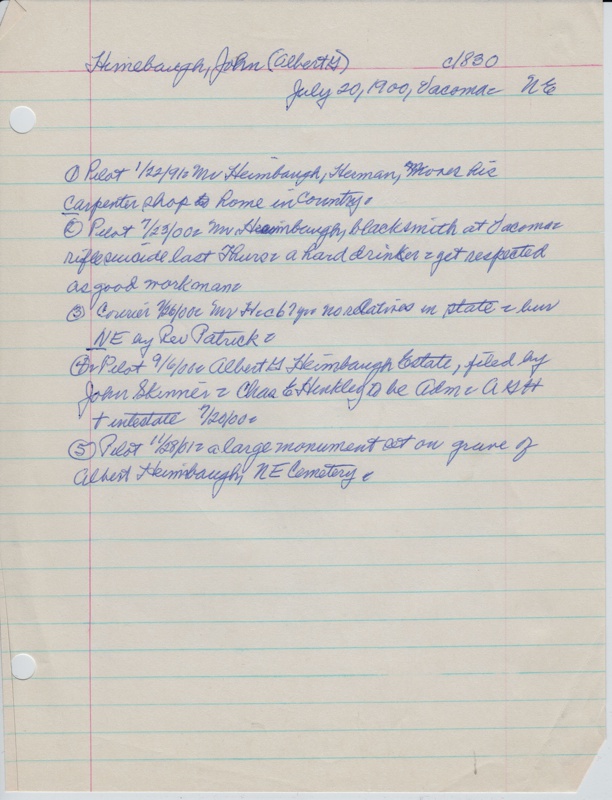 Himebaugh, John (Albert G) c1830
July 20, 1900, Vacoma NE
① Pilot 1/22/91 Mr Heimbaugh, Herman, Moves his
carpenter shop to home in country.
② Pilot 7/23/00 Mr. Heimbaugh, blacksmith at Vacoma
rifle suicide last Thurs a hard drinker yet respected
as good workman
③ Courier 7/26/00 Mr H no relatives in state bur
NE by Rev Patrick
④ Pilot 9/6/00 Albert G Heimbaugh Estate, filed by
John Skinner Chas E Hinkley to be Adm A G H
+ intestate 7/20/00
⑤ Pilot 11/28/01 a large monument set on grave of
Albert Heimbaugh, NE Cemetery.